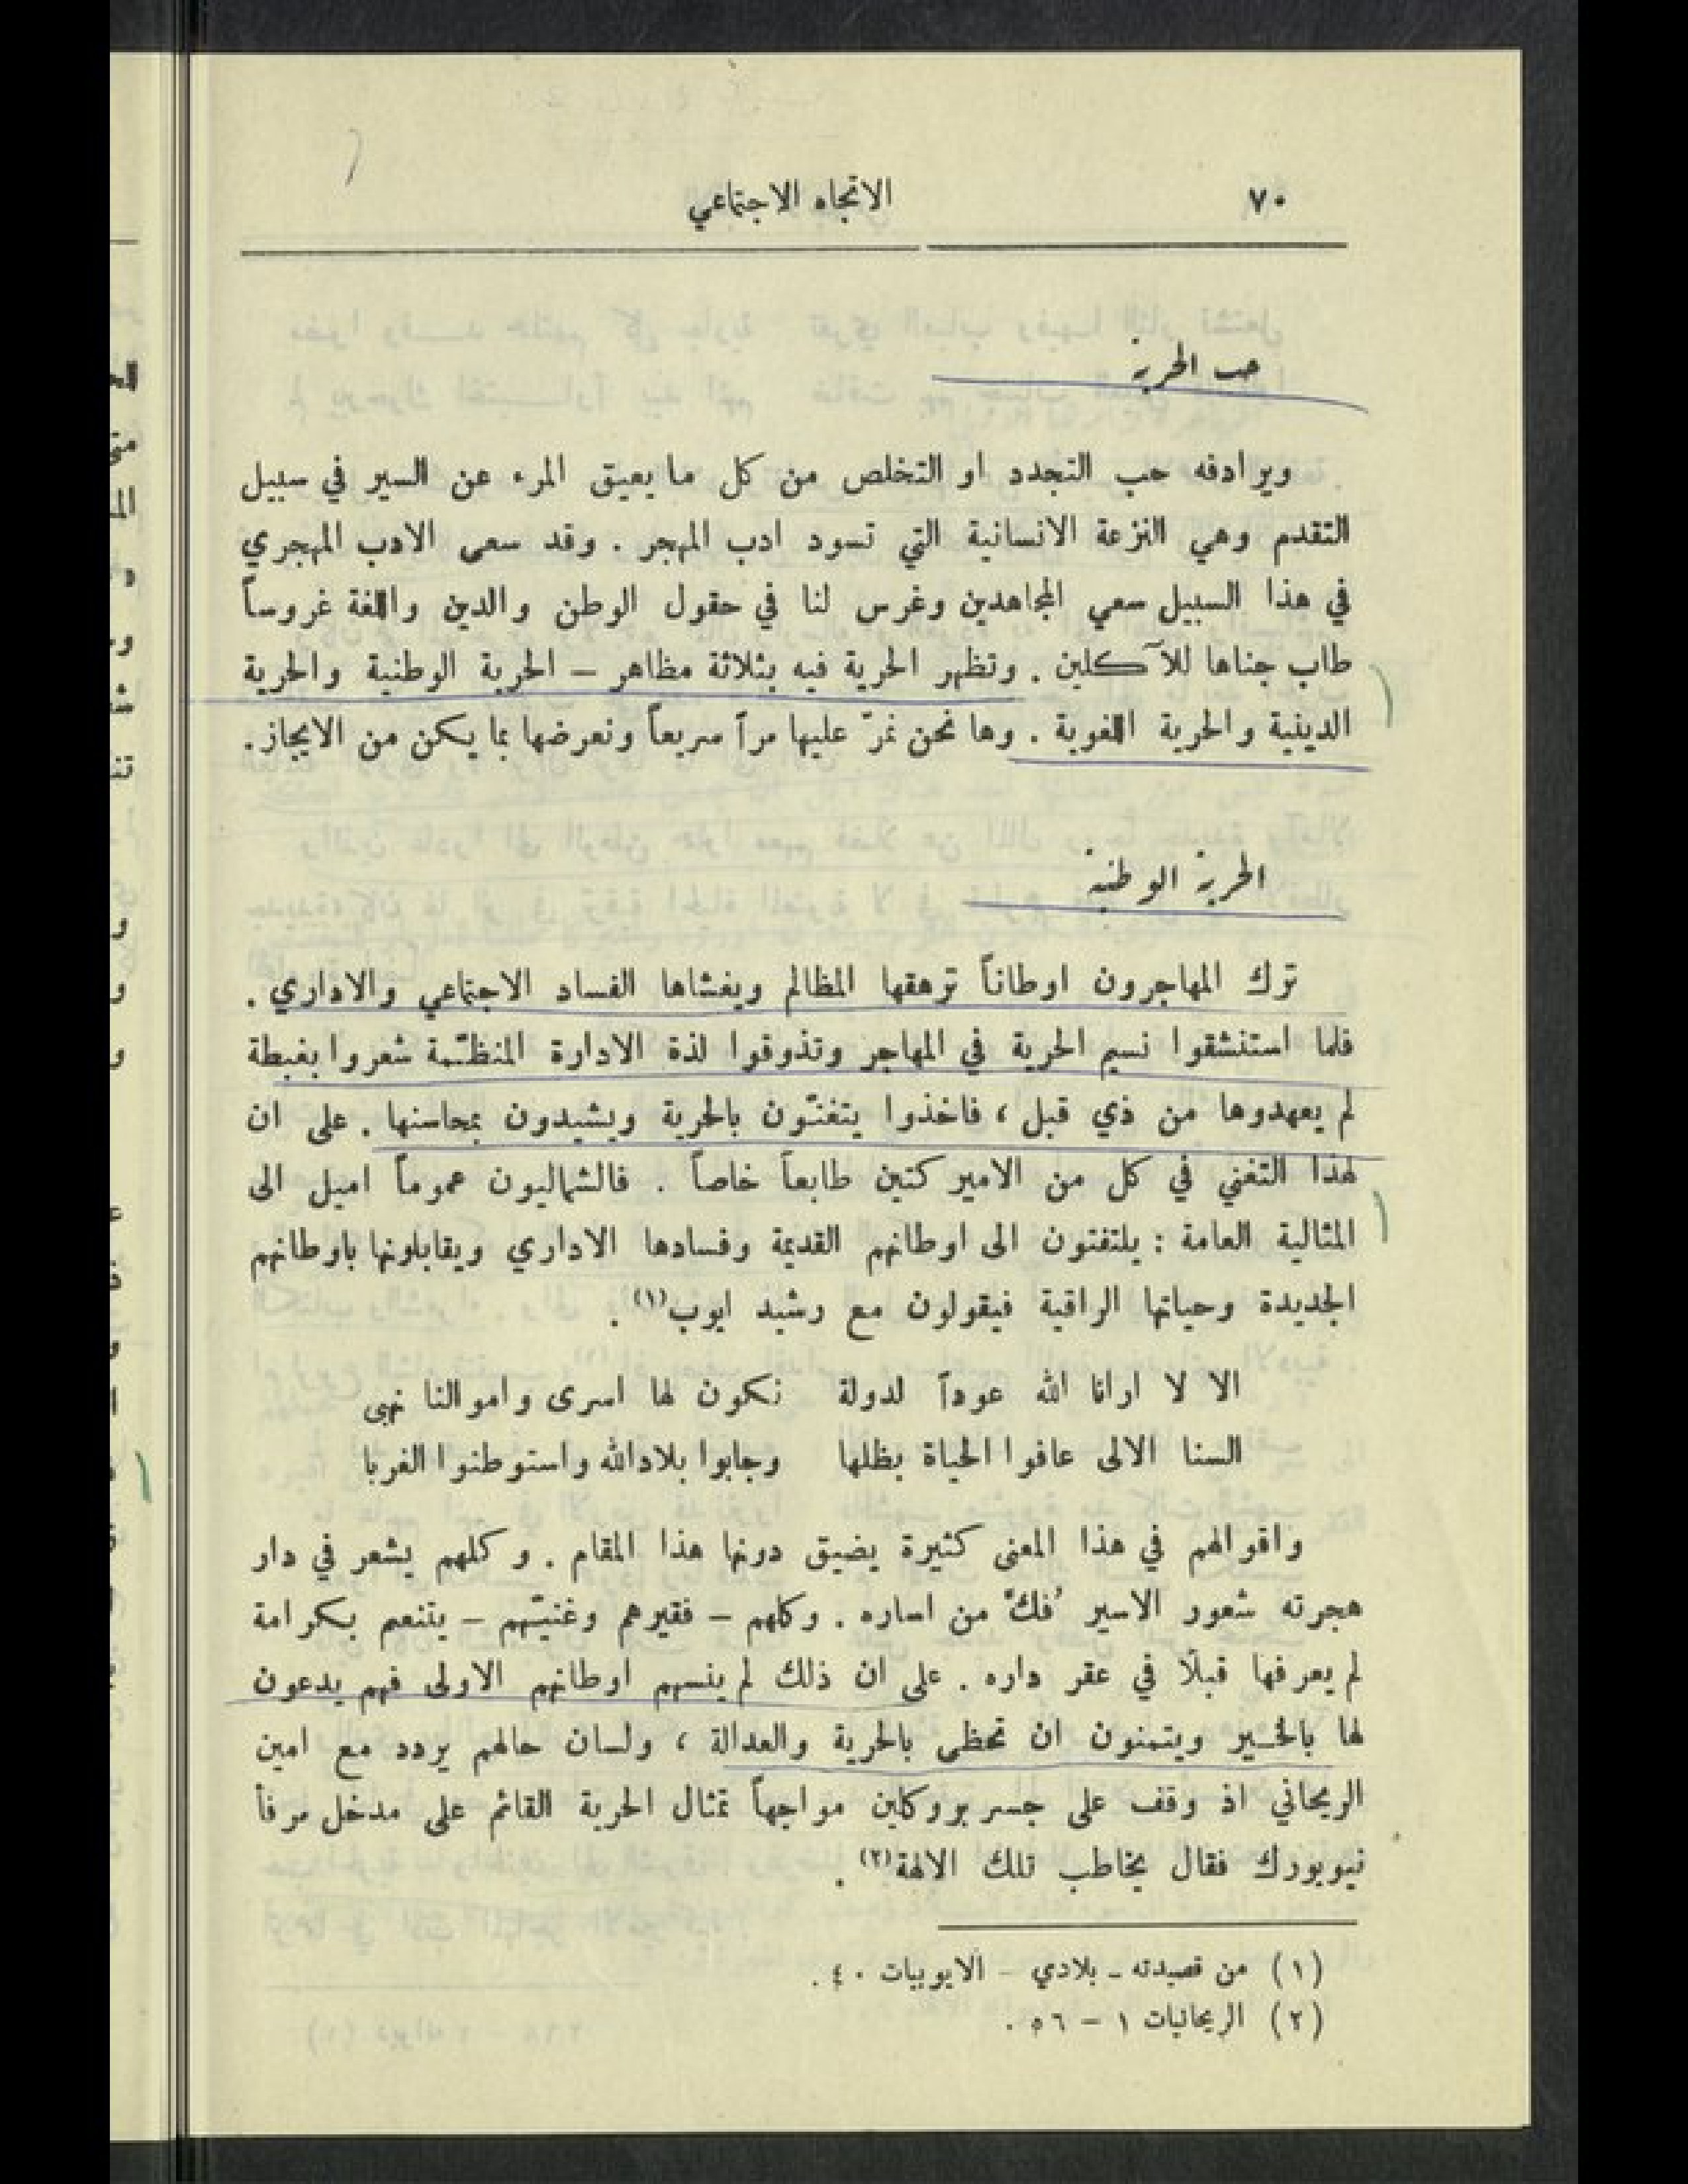 ٧٠
الاتجاه الاجتماعي
حب الحرية
ويرادفه حب التجدد او التخلص من كل ما يعيق المرء عن السير في سبيل
التقدم وهي النزعة الانسانية التي تسود ادب المهجر . وقد سعى الادب المهجري
في هذا السبيل سعي المجاهدين وغرس لنا في حقول الوطن والدين واللغة غروساً
طاب جناها للآكلين . وتظهر الحرية فيه بثلاثة مظاهر – الحرية الوطنية والحرية
الدينية والحرية اللغوية . وها نحن نمرّ عليها مراً سريعاً ونعرضها بما يمكن من الايجاز .
الحرية الوطنية
ترك المهاجرون اوطاناً ترهقها المظالم ويغشاها الفساد الاجتماعي والاداري .
فلما استنشقوا نسيم الحرية في المهاجر وتذوقوا لذة الادارة المنظّمة شعروا بغبطة
لم يعهدوها من ذي قبل ، فاخذوا يتغنّون بالحرية ويشيدون بمحاسنها . على ان
لهذا التغني في كل من الاميركتين طابعاً خاصاً . فالشماليون عموماً اميل الى
المثالية العامة : يلتفتون الى اوطانهم القديمة وفسادها الاداري ويقابلونها باوطانهم
الجديدة وحياتها الراقية فيقولون مع رشيد ايوب(١) .
الا لا ارانا الله عوداً لدولة نكون لها اسرى واموالنا نهبى
السنا الالى عافوا الحياة بظلها وجابوا بلاد الله واستوطنوا الغربا
واقوالهم في هذا المعنى كثيرة يضيق دونها هذا المقام . وكلهم يشعر في دار
هجرته شعور الاسير فُكّ من اساره . وكلهم – فقيرهم وغنيّهم – يتنعم بكرامة
لم يعرفها قبلًا في عقر داره . على ان ذلك لم ينسهم اوطانهم الاولى فهم يدعون
لها بالخير ويتمنون ان تحظى بالحرية والعدالة ، ولسان حالهم يردد مع امين
الريحاني اذ وقف على جسر بروكلين مواجهاً تمثال الحرية القائم على مدخل مرفأ
نيويورك فقال يخاطب تلك الالهة(٢) .
(١) من قصيدته – بلادي – الايوبيات ٤٠ .
(٢) الريحانيات ١ – ٥٦ .